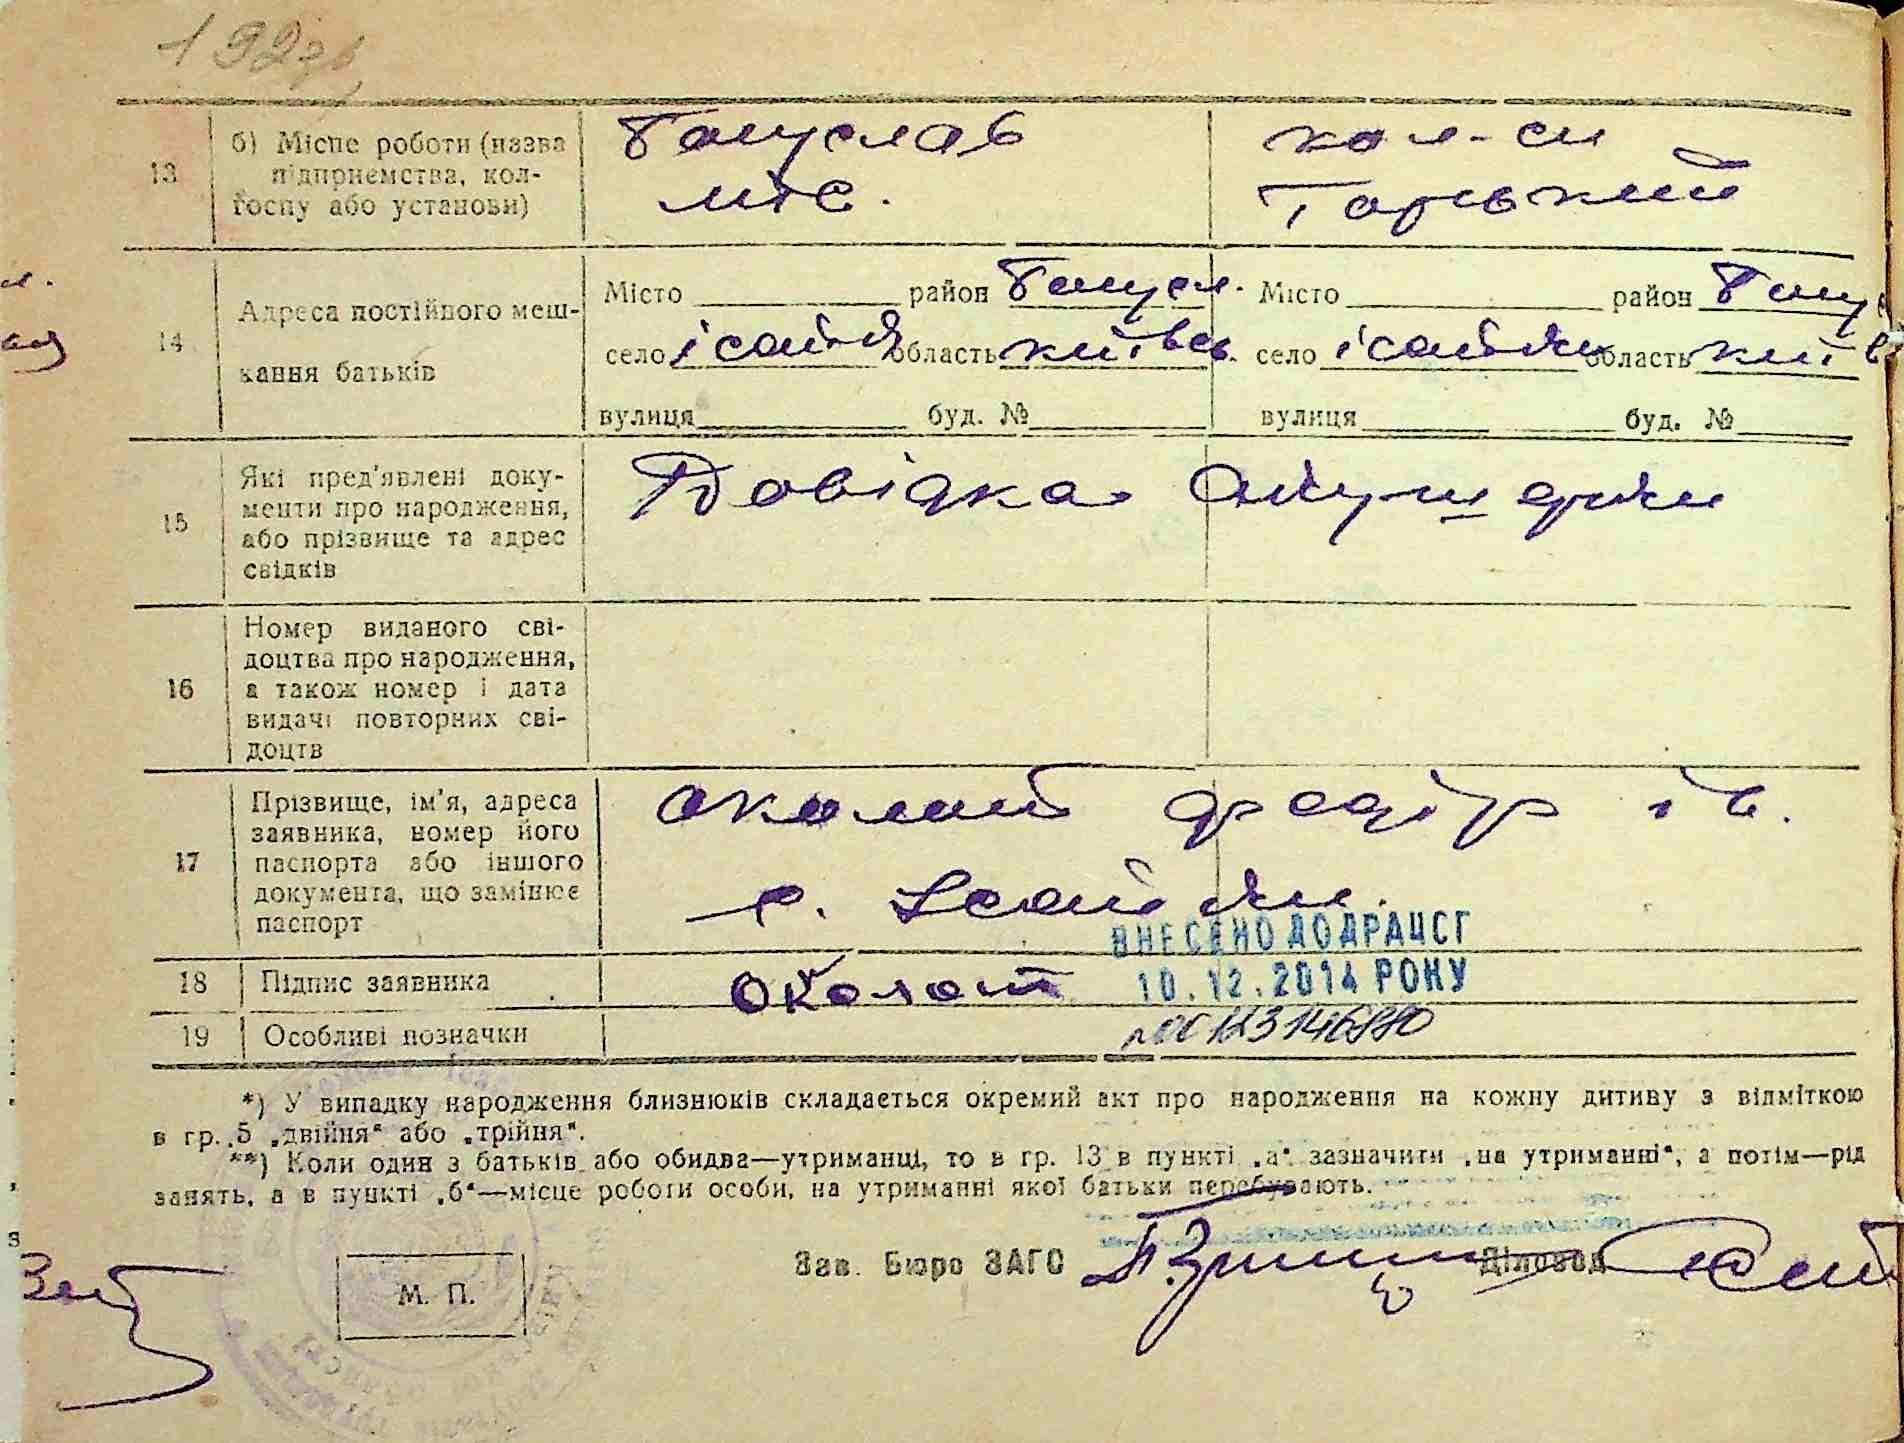 192зв
13
б) Місце роботи (назва
підприємства, кол-
госпу або установи)
Богуслав
мтс.
кол-сп
Горький
14
Адреса постійного меш-
кання батьків
Місто район Богусл.
село Ісайки область Київськ.
вулиця буд. №
Місто район Богу
село Ісайки область Київ
вулиця буд. №
15
Які пред'явлені доку-
менти про народження,
або прізвище та адрес
свідків
Довідка Акушерки
16
Номер виданого сві-
доцтва про народження,
а також номер і дата
видачі повторних сві-
доцтв
17
Прізвище, ім'я, адреса
заявника, номер його
паспорта або іншого
документа, що замінює
паспорт
Околот Федір Ів.
с. Ісайки.
ВНЕСЕНО ДО ДРАЦСГ
10.12.2014 РОКУ
18 Підпис заявника
Околот
19 Особливі позначки
*) У випадку народження близнюків складається окремий акт про народження на кожну дитину з відміткою
в гр. 5 „двійня“ або „трійня“.
**) Коли один з батьків або обидва—утриманці, то в гр. 13 в пункті „а“ зазначити „на утриманні“, а потім—рід
занять, а в пункті „б“—місце роботи особи, на утриманні якої батьки перебувають.
Зав. Бюро ЗАГС
Діловод
М. П.